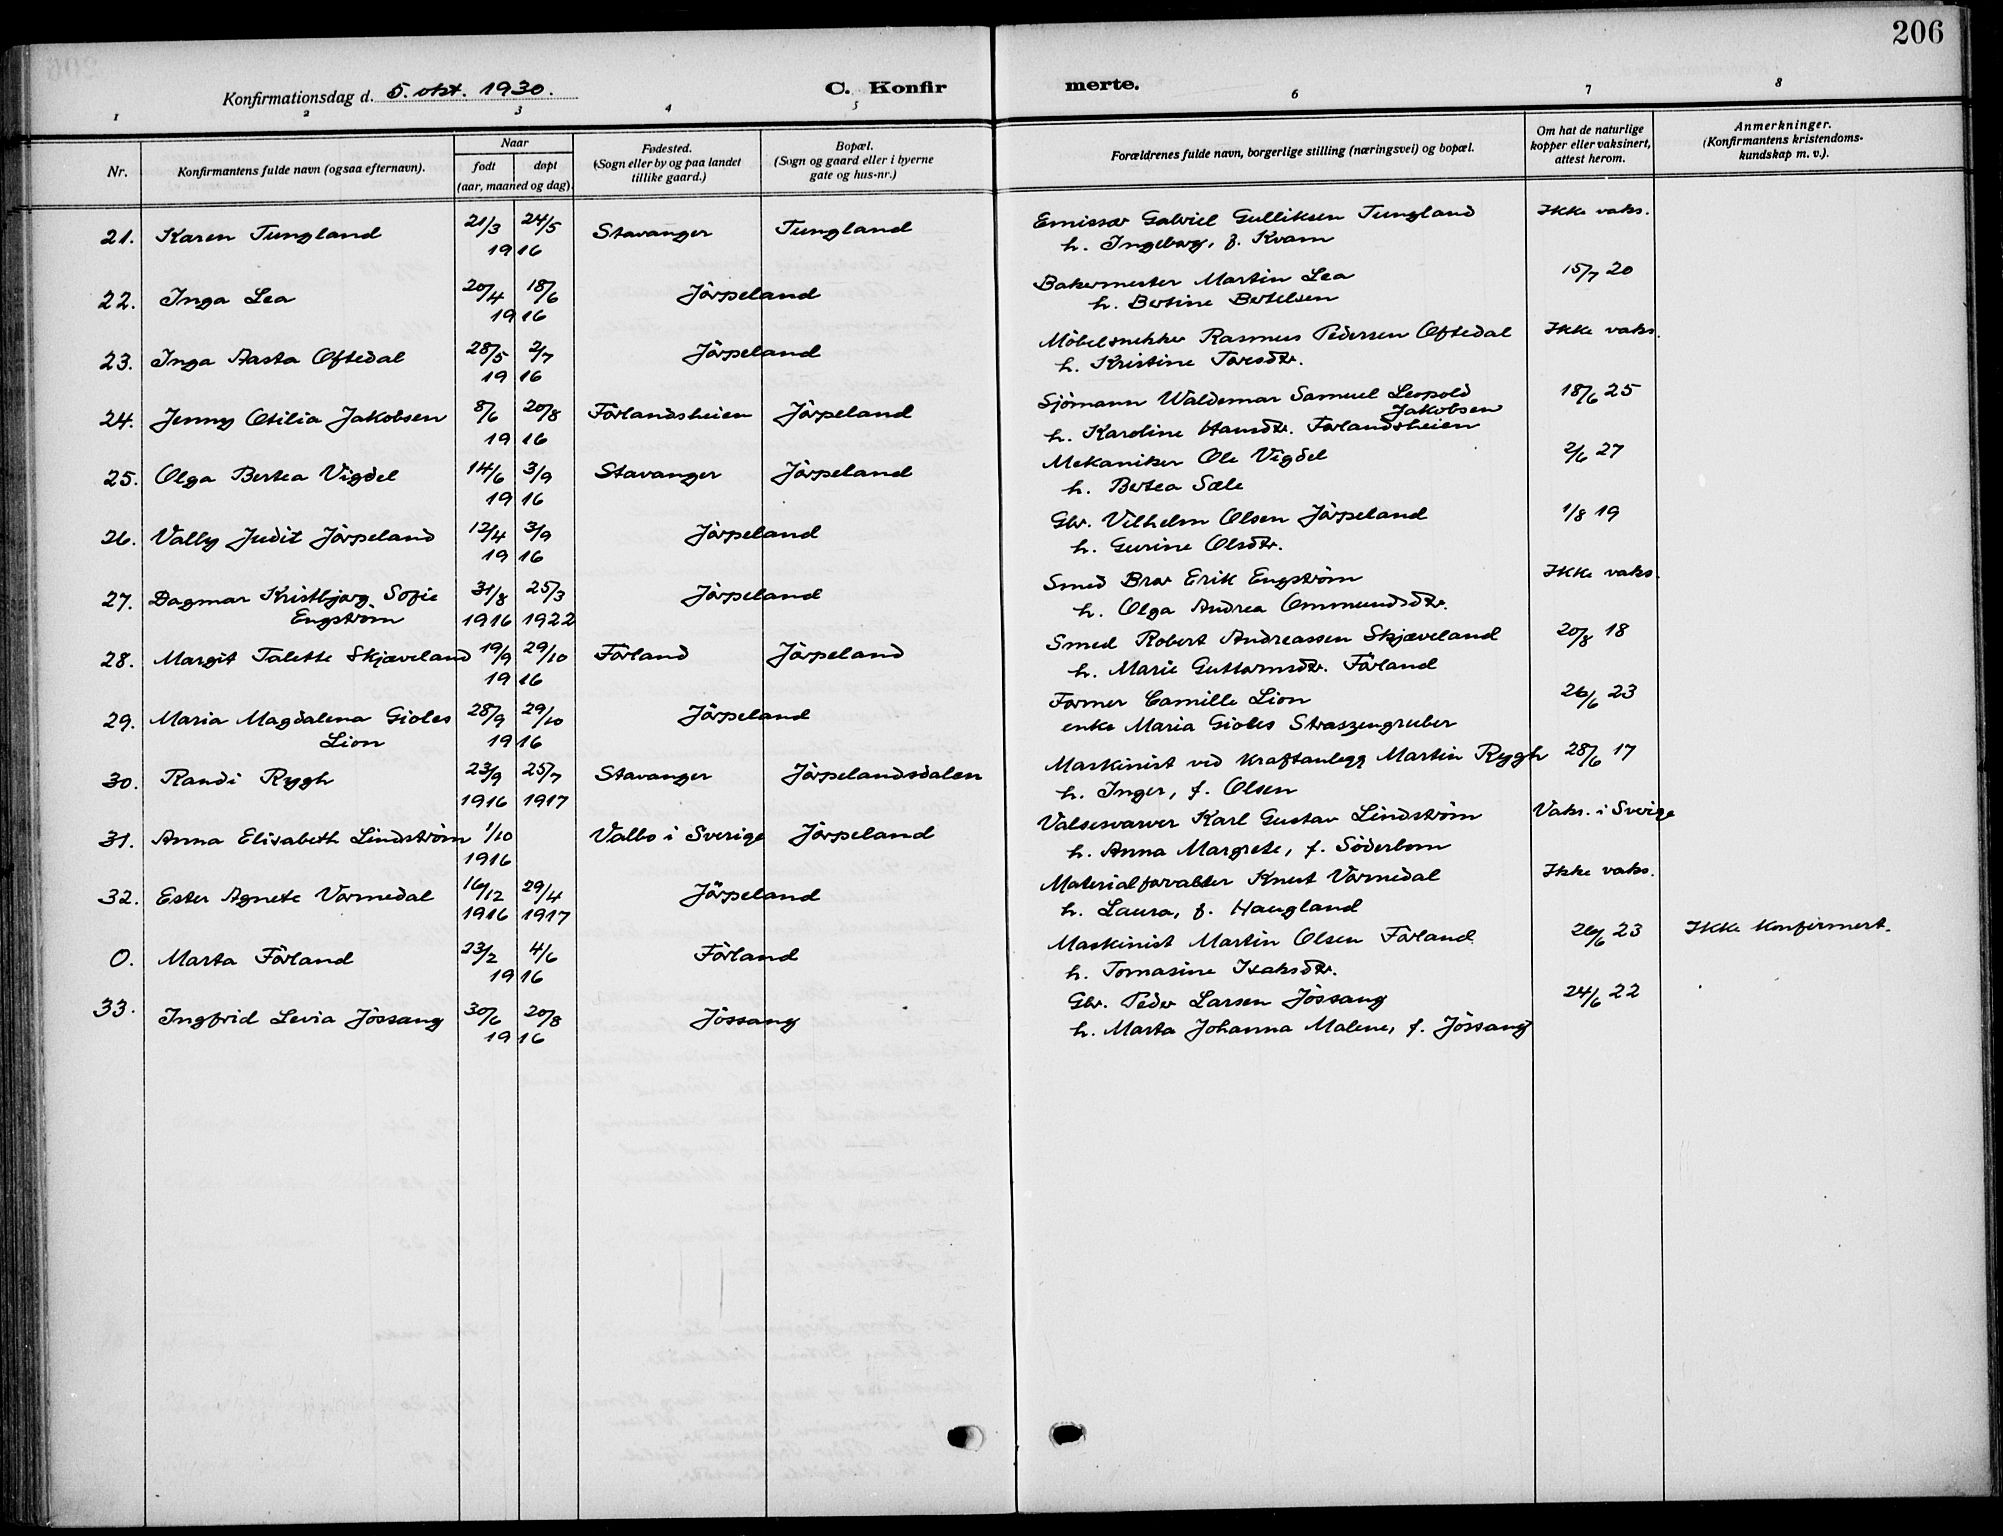 206
Konfirmationsdag d. 5. okt. 1930. C. Konfirmerte.
1 2 3 4 5 6 7 8
Nr. Konfirmantens fulde navn (ogsaa efternavn). Naar født døpt (aar, maaned og dag) Fødested. (Sogn eller by og paa landet tillike gaard.) Bopæl. (Sogn og gaard eller i byerne gate og hus-nr.) Forældrenes fulde navn, borgerlige stilling (næringsvei) og bopæl. Om hat de naturlige kopper eller vaksinert, attest herom. Anmerkninger. (Konfirmantens kristendomskundskap m. v.).
21. Karen Tungland 21/3 24/5 Stavanger Tungland Emissær Gabriel Gulliksen Tungland Ikke vaks.
1916 h. Ingeborg, f. Kvam
22. Inga Lea 20/4 18/6 Jörpeland Bakermester Martin Lea 15/7 20
1916 h. Bertine Bertelsen
23. Inga Aasta Oftedal 28/5 2/7 Jörpeland Möbelsnekker Rasmus Pedersen Oftedal Ikke vaks.
1916 h. Kristine Toresdtr.
24. Jenny Otilia Jakobsen 8/6 20/8 Förlandsheien Jörpeland Sjömann Waldemar Samuel Leopold Jakobsen 18/6 25
1916 h. Karoline Hansdtr. Förlandsheien
25. Olga Bertea Vigdel 14/6 3/9 Stavanger Jörpeland Mekaniker Ole Vigdel 2/6 27
1916 h. Bertea Sæle
26. Vally Judit Jörpeland 12/4 3/9 Jörpeland Gbr. Vilhelm Olsen Jörpeland 1/8 19
1916 h. Gurine Olsdtr.
27. Dagmar Kristbjørg Sofie 31/8 25/3 Jörpeland Smed Bror Erik Engström Ikke vaks.
Engström 1916 1922 h. Olga Andrea Ommundsdtr.
28. Margit Talette Skjæveland 19/9 29/10 Förland Jörpeland Smed Robert Andreassen Skjæveland 20/8 18
1916 h. Marie Guttormsdtr. Förland
29. Maria Magdalena Gioles 28/9 29/10 Jörpeland Former Camille Lion 26/6 23
Lion 1916 enke Maria Gioles Straszengruber
30. Randi Rygh 23/9 25/7 Stavanger Jörpelandsdalen Maskinist ved kraftanlegg Martin Rygh 28/6 17
1916 1917 h. Inger, f. Olsen
31. Anna Elisabeth Lindström 1/10 Valbo i Sverige Jörpeland Valsesvarver Karl Gustav Lindström Vaks. i Sverige
1916 h. Anna Margrete, f. Söderbom
32. Ester Agnete Vormedal 16/12 29/4 Jörpeland Materialforvalter Knut Vormedal Ikke vaks.
1916 1917 h. Laura, f. Haugland
0. Marta Förland 23/2 4/6 Förland Maskinist Martin Olsen Förland 26/6 23 Ikke konfirmert.
1916 h. Tomasine Isaksdtr.
33. Ingfrid Levia Jössang 30/6 20/8 Jössang Gbr. Peder Larsen Jössang 24/6 22
1916 h. Marta Johanna Malene, f. Jössang